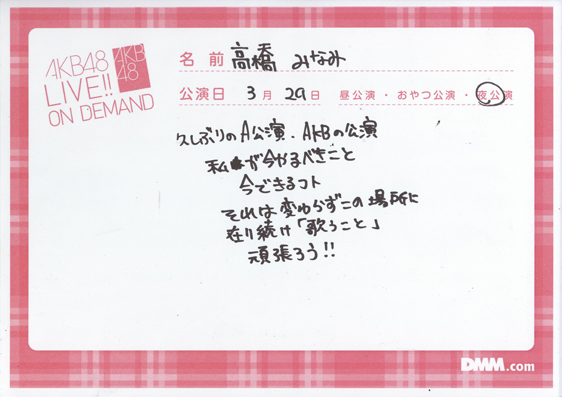 AKB48
LIVE!!
ON DEMAND
AKB
48
名 前 高橋 みなみ
公演日 3月 29日 昼公演・おやつ公演・夜公演
久しぶりのA公演、AKBの公演
私が今やるべきこと
今できるコト
それは変わらずこの場所に
在り続け「歌うこと」
頑張ろう!!
DMM.com